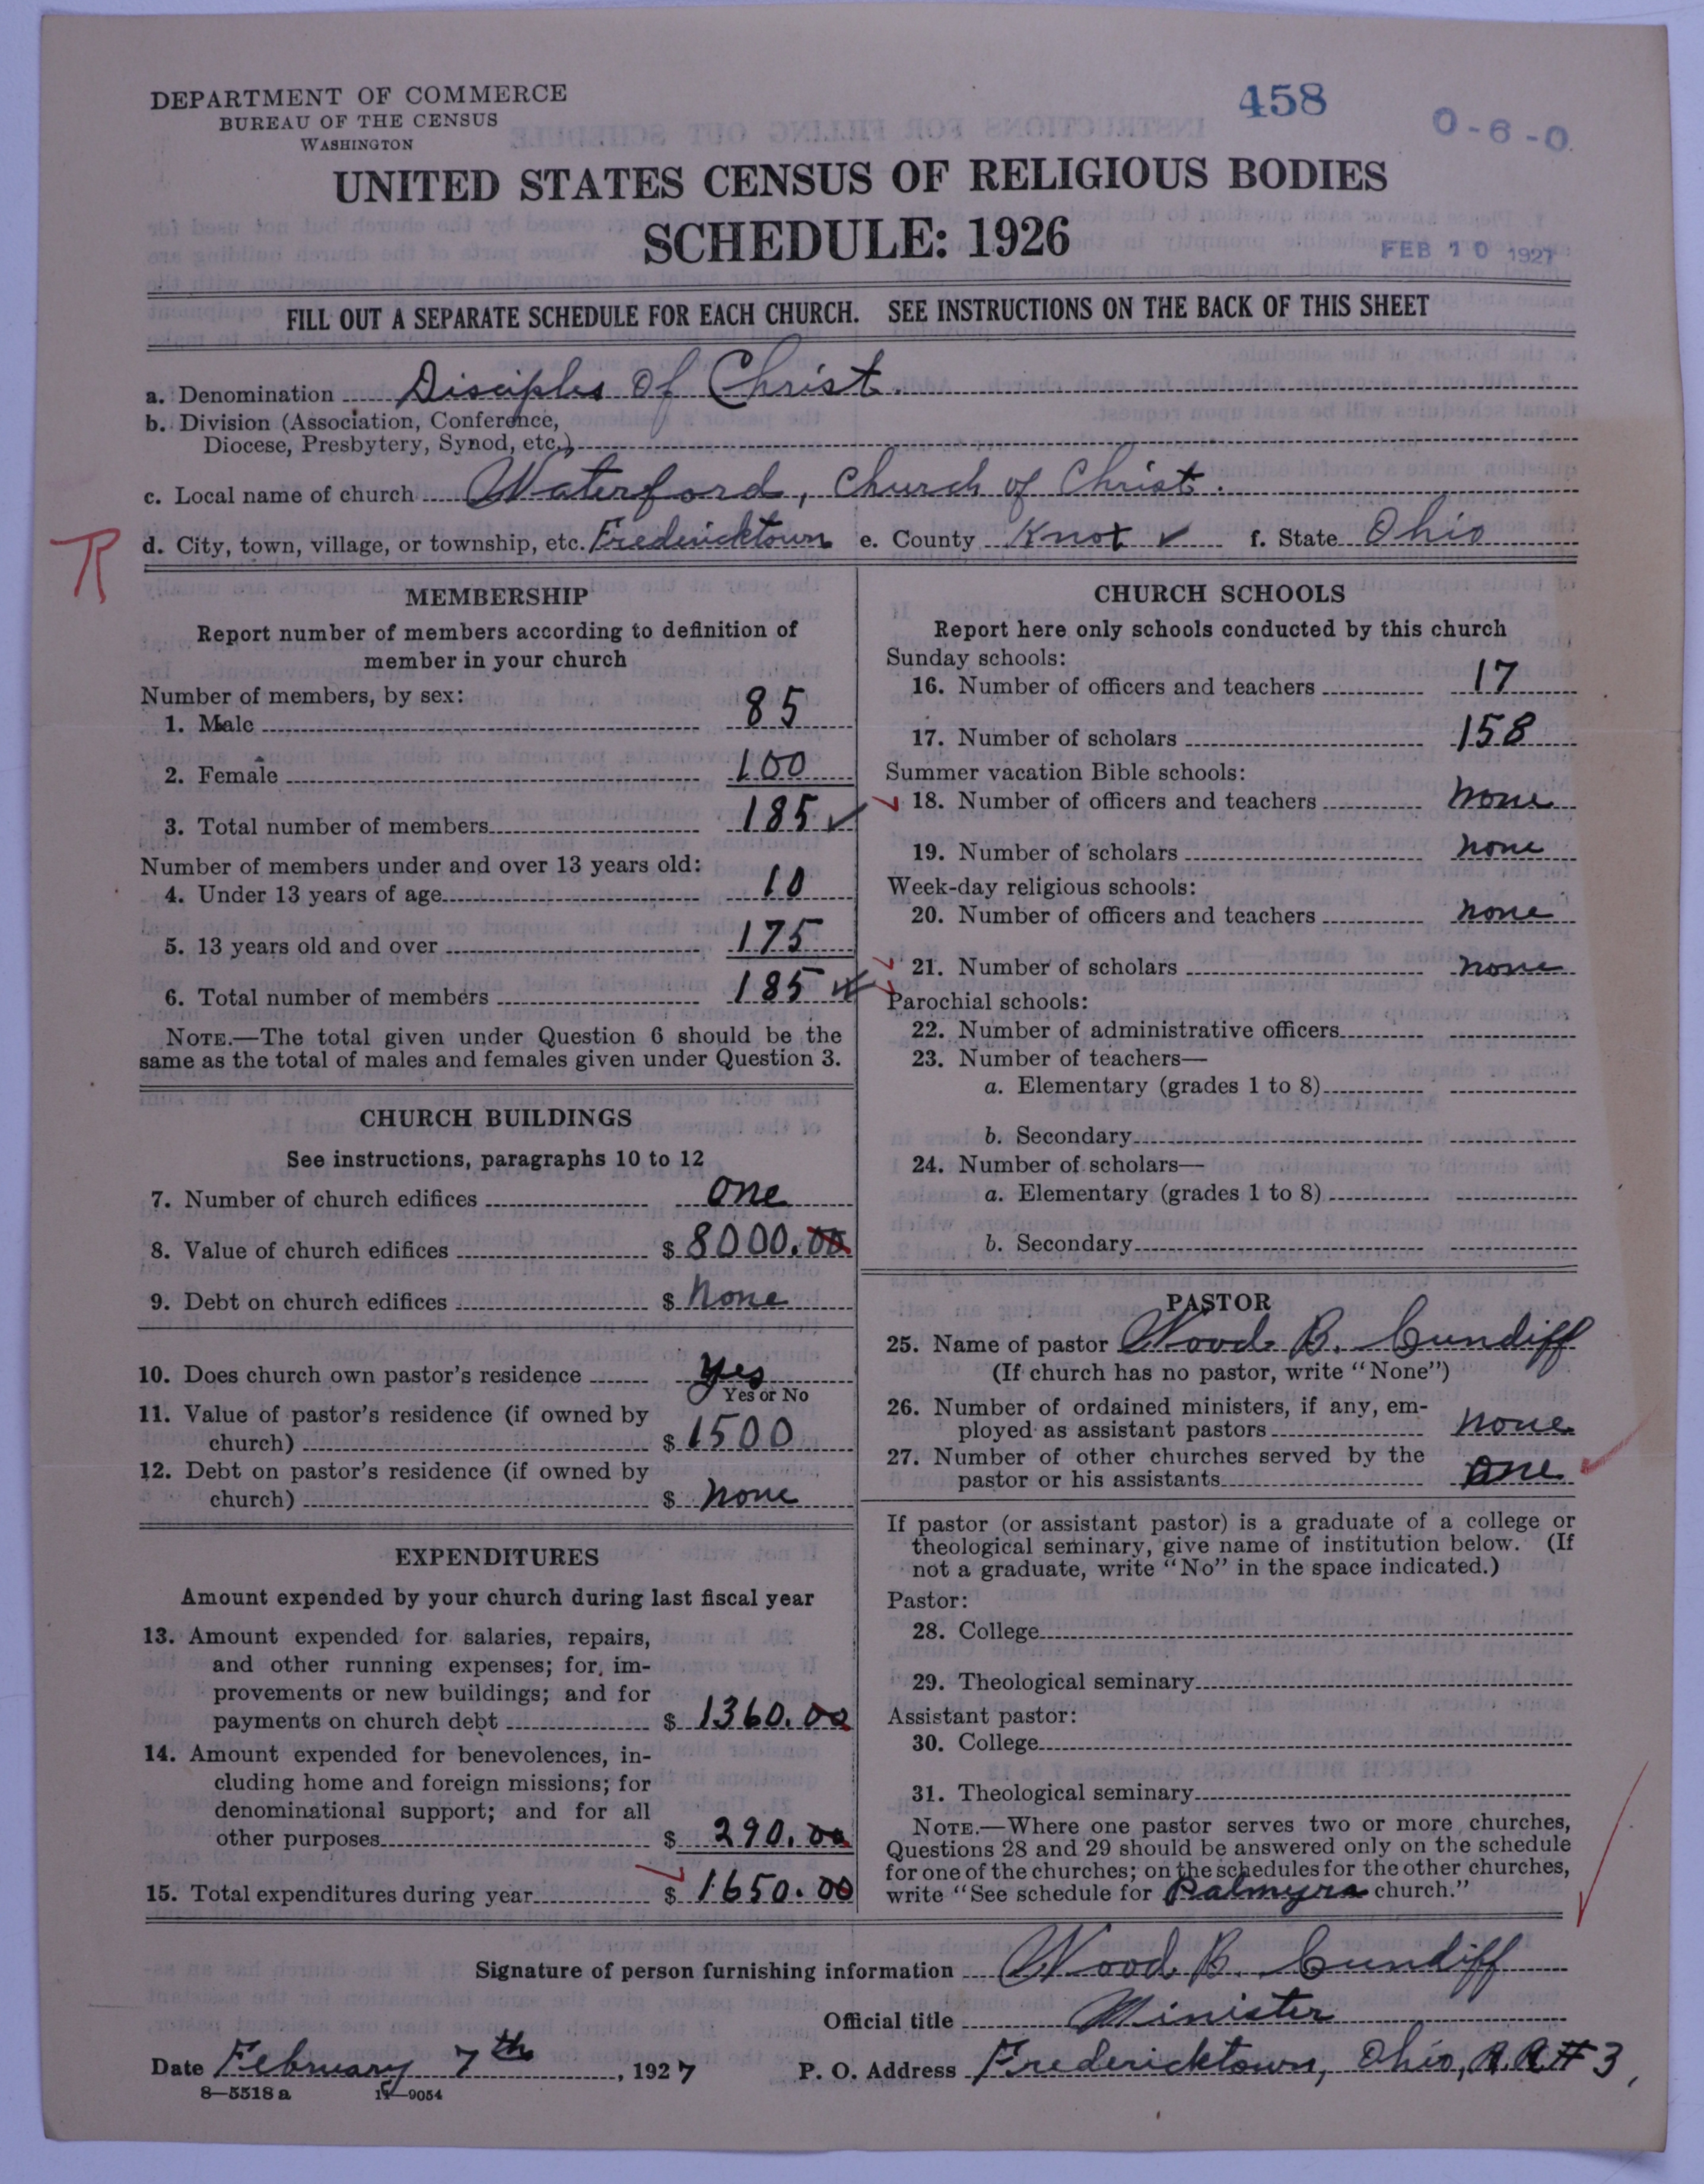 DEPARTMENT OF COMMERCE
BUREAU OF THE CENSUS
WASHINGTON
458
0-6-0
UNITED STATES CENSUS OF RELIGIOUS BODIES
SCHEDULE: 1926
FEB 10 1927
FILL OUT A SEPARATE SCHEDULE FOR EACH CHURCH. SEE INSTRUCTIONS ON THE BACK OF THIS SHEET
a. Denomination Disciples Of Christ.
b. Division (Association, Conference,
Diocese, Presbytery, Synod, etc.)
c. Local name of church Waterford, Church of Christ.
R
d. City, town, village, or township, etc. Fredericktown e. County Knox ✓ f. State Ohio
MEMBERSHIP
Report number of members according to definition of
member in your church
Number of members, by sex:
1. Male 85
2. Female 100
3. Total number of members 185 ✓
Number of members under and over 13 years old:
4. Under 13 years of age 10
5. 13 years old and over 175
6. Total number of members 185
NOTE.—The total given under Question 6 should be the
same as the total of males and females given under Question 3.
CHURCH BUILDINGS
See instructions, paragraphs 10 to 12
7. Number of church edifices one
8. Value of church edifices $ 8000.00
9. Debt on church edifices $ None
10. Does church own pastor's residence Yes
Yes or No
11. Value of pastor's residence (if owned by
church) $ 1500
12. Debt on pastor's residence (if owned by
church) $ none
EXPENDITURES
Amount expended by your church during last fiscal year
13. Amount expended for salaries, repairs,
and other running expenses; for im-
provements or new buildings; and for
payments on church debt $ 1360.00
14. Amount expended for benevolences, in-
cluding home and foreign missions; for
denominational support; and for all
other purposes $ 290.00
15. Total expenditures during year $ 1650.00
CHURCH SCHOOLS
Report here only schools conducted by this church
Sunday schools:
16. Number of officers and teachers 17
17. Number of scholars 158
Summer vacation Bible schools:
18. Number of officers and teachers none
19. Number of scholars none
Week-day religious schools:
20. Number of officers and teachers none
21. Number of scholars none
Parochial schools:
22. Number of administrative officers
23. Number of teachers—
a. Elementary (grades 1 to 8)
b. Secondary
24. Number of scholars—
a. Elementary (grades 1 to 8)
b. Secondary
PASTOR
25. Name of pastor Wood B. Cundiff
(If church has no pastor, write "None")
26. Number of ordained ministers, if any, em-
ployed as assistant pastors none
27. Number of other churches served by the
pastor or his assistants one
If pastor (or assistant pastor) is a graduate of a college or
theological seminary, give name of institution below. (If
not a graduate, write "No" in the space indicated.)
Pastor:
28. College
29. Theological seminary
Assistant pastor:
30. College
31. Theological seminary
NOTE.—Where one pastor serves two or more churches,
Questions 28 and 29 should be answered only on the schedule
for one of the churches; on the schedules for the other churches,
write "See schedule for Palmyra church."
Signature of person furnishing information Wood B. Cundiff
Official title Minister
Date February 7th, 1927 P. O. Address Fredericktown, Ohio, R.R # 3,
8—5518 a 11—9054